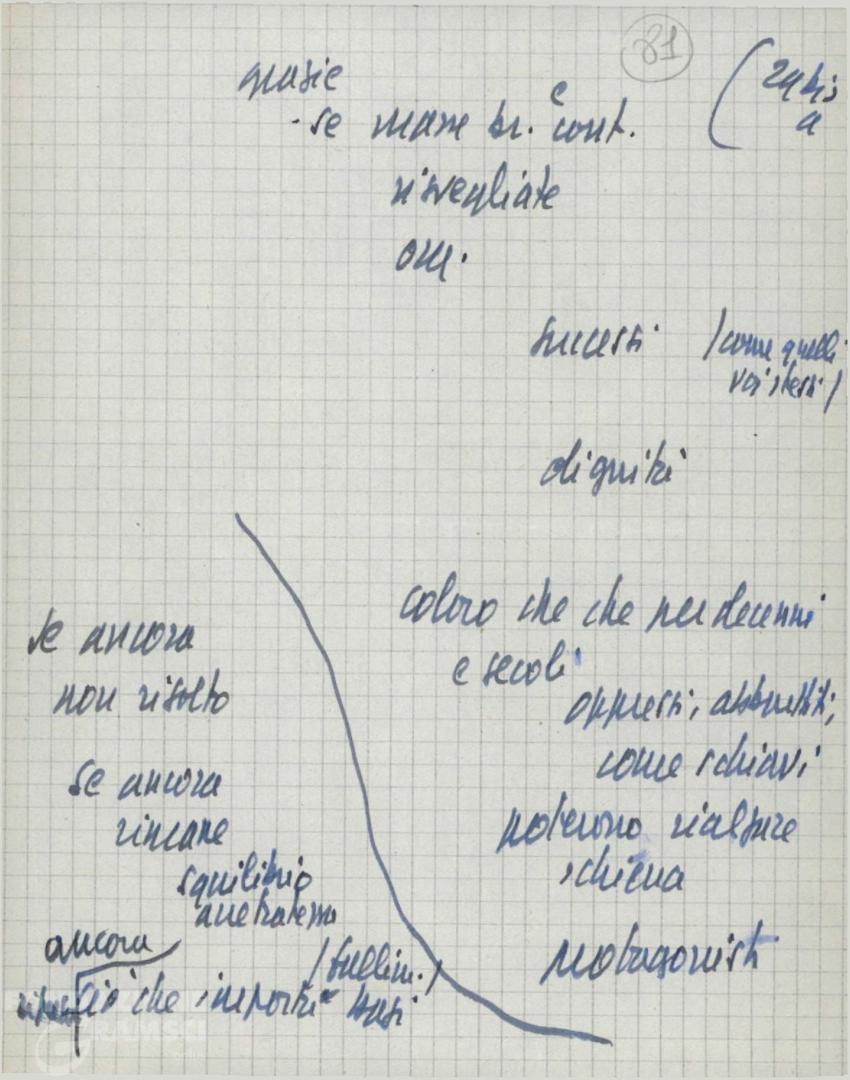 81
grazie
- se masse br. e cont.
(24 bis
a
risvegliate
orz.
successi /come quelli
voi stessi/
dignità
coloro che che per decenni
e secoli
oppressi, abbrutiti,
come schiavi
poterono rialzare
schiena
protagonisti
se ancora
non risolto
se ancora
rimane
squilibrio
arretratezza
ancora
/sottolin./
ciò che importa = basi